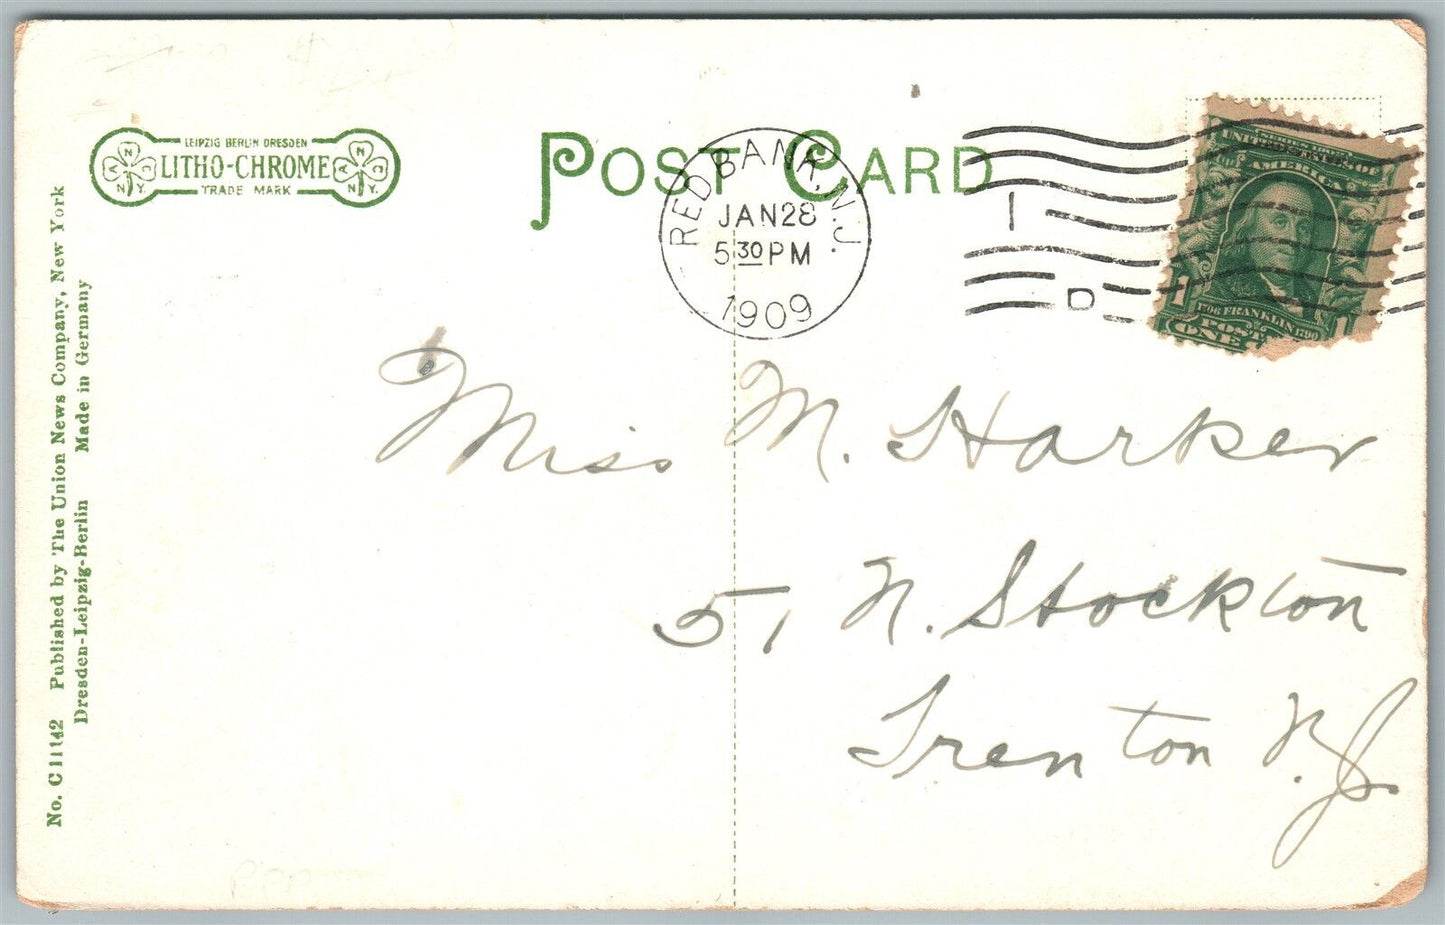 LEIPZIG BERLIN DRESDEN
LITHO-CHROME
TRADE MARK
N.Y.
N.Y.
POST CARD
RED BANK, N.J.
JAN 28
5 30 PM
1909
1
D
UNITED STATES OF
AMERICA
1706 FRANKLIN 1790
1 1
POST
ONE
No. C11142 Published by The Union News Company, New York
Dresden-Leipzig-Berlin Made in Germany
Miss M. Harker
51 N. Stockton
Trenton N.J.